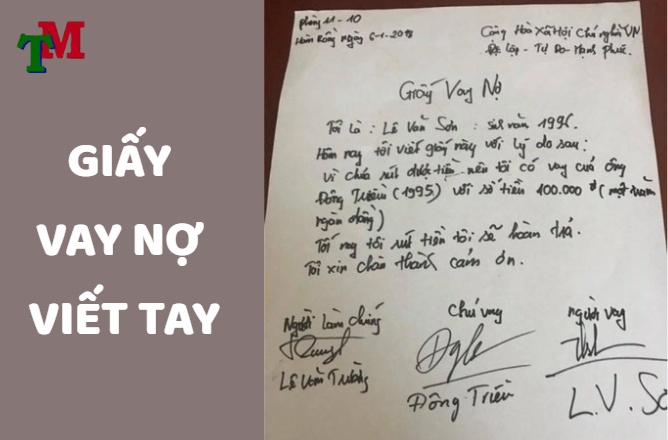 TM
GIẤY
VAY NỢ
VIẾT TAY
phòng 11-10
Hàm Rồng ngày 6-1-2018
Cộng Hoà Xã Hội Chủ nghĩa VN
Độc lập - Tự Do - Hạnh phúc.
Giấy Vay Nợ
Tôi là : Lê Văn Sơn : sinh năm 1996.
Hôm nay tôi viết giấy này với lý do sau:
vì chưa rút được tiền nên tôi có vay của ông
Đông Triều (1995) với số tiền 100.000 đ (một trăm
ngàn đồng)
Tối nay tôi rút tiền tôi sẽ hoàn trả.
Tôi xin chân thành cảm ơn.
Người làm chứng
Lê Văn Trường
Chủ vay
Đông Triều
người vay
L.V. Sơ